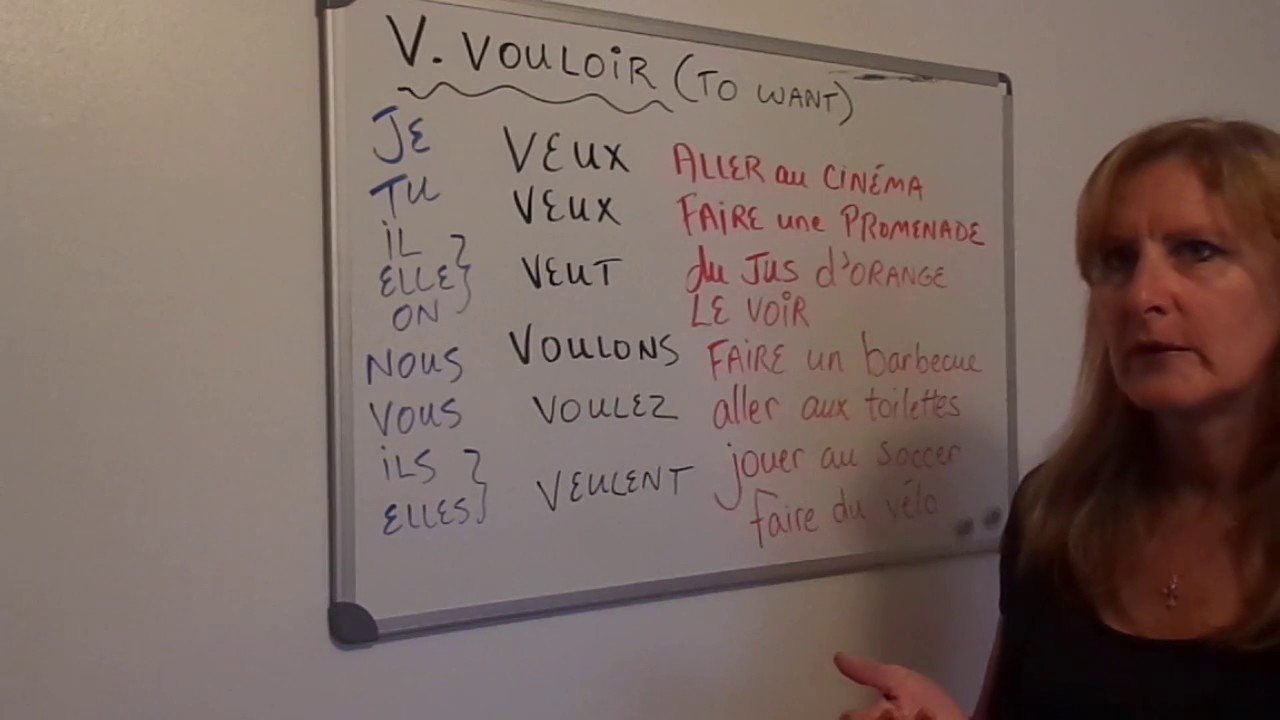 V. VOULOIR (TO WANT)
JE VEUX ALLER au CINÉMA
TU VEUX FAIRE une PROMENADE
iL
ELLE } VEUT du JUS d'ORANGE
ON LE VOIR
NOUS VOULONS FAIRE un barbecue
VOUS VOULEZ aller aux toilettes
iLS } jouer au soccer
VEULENT
ELLES faire du vélo